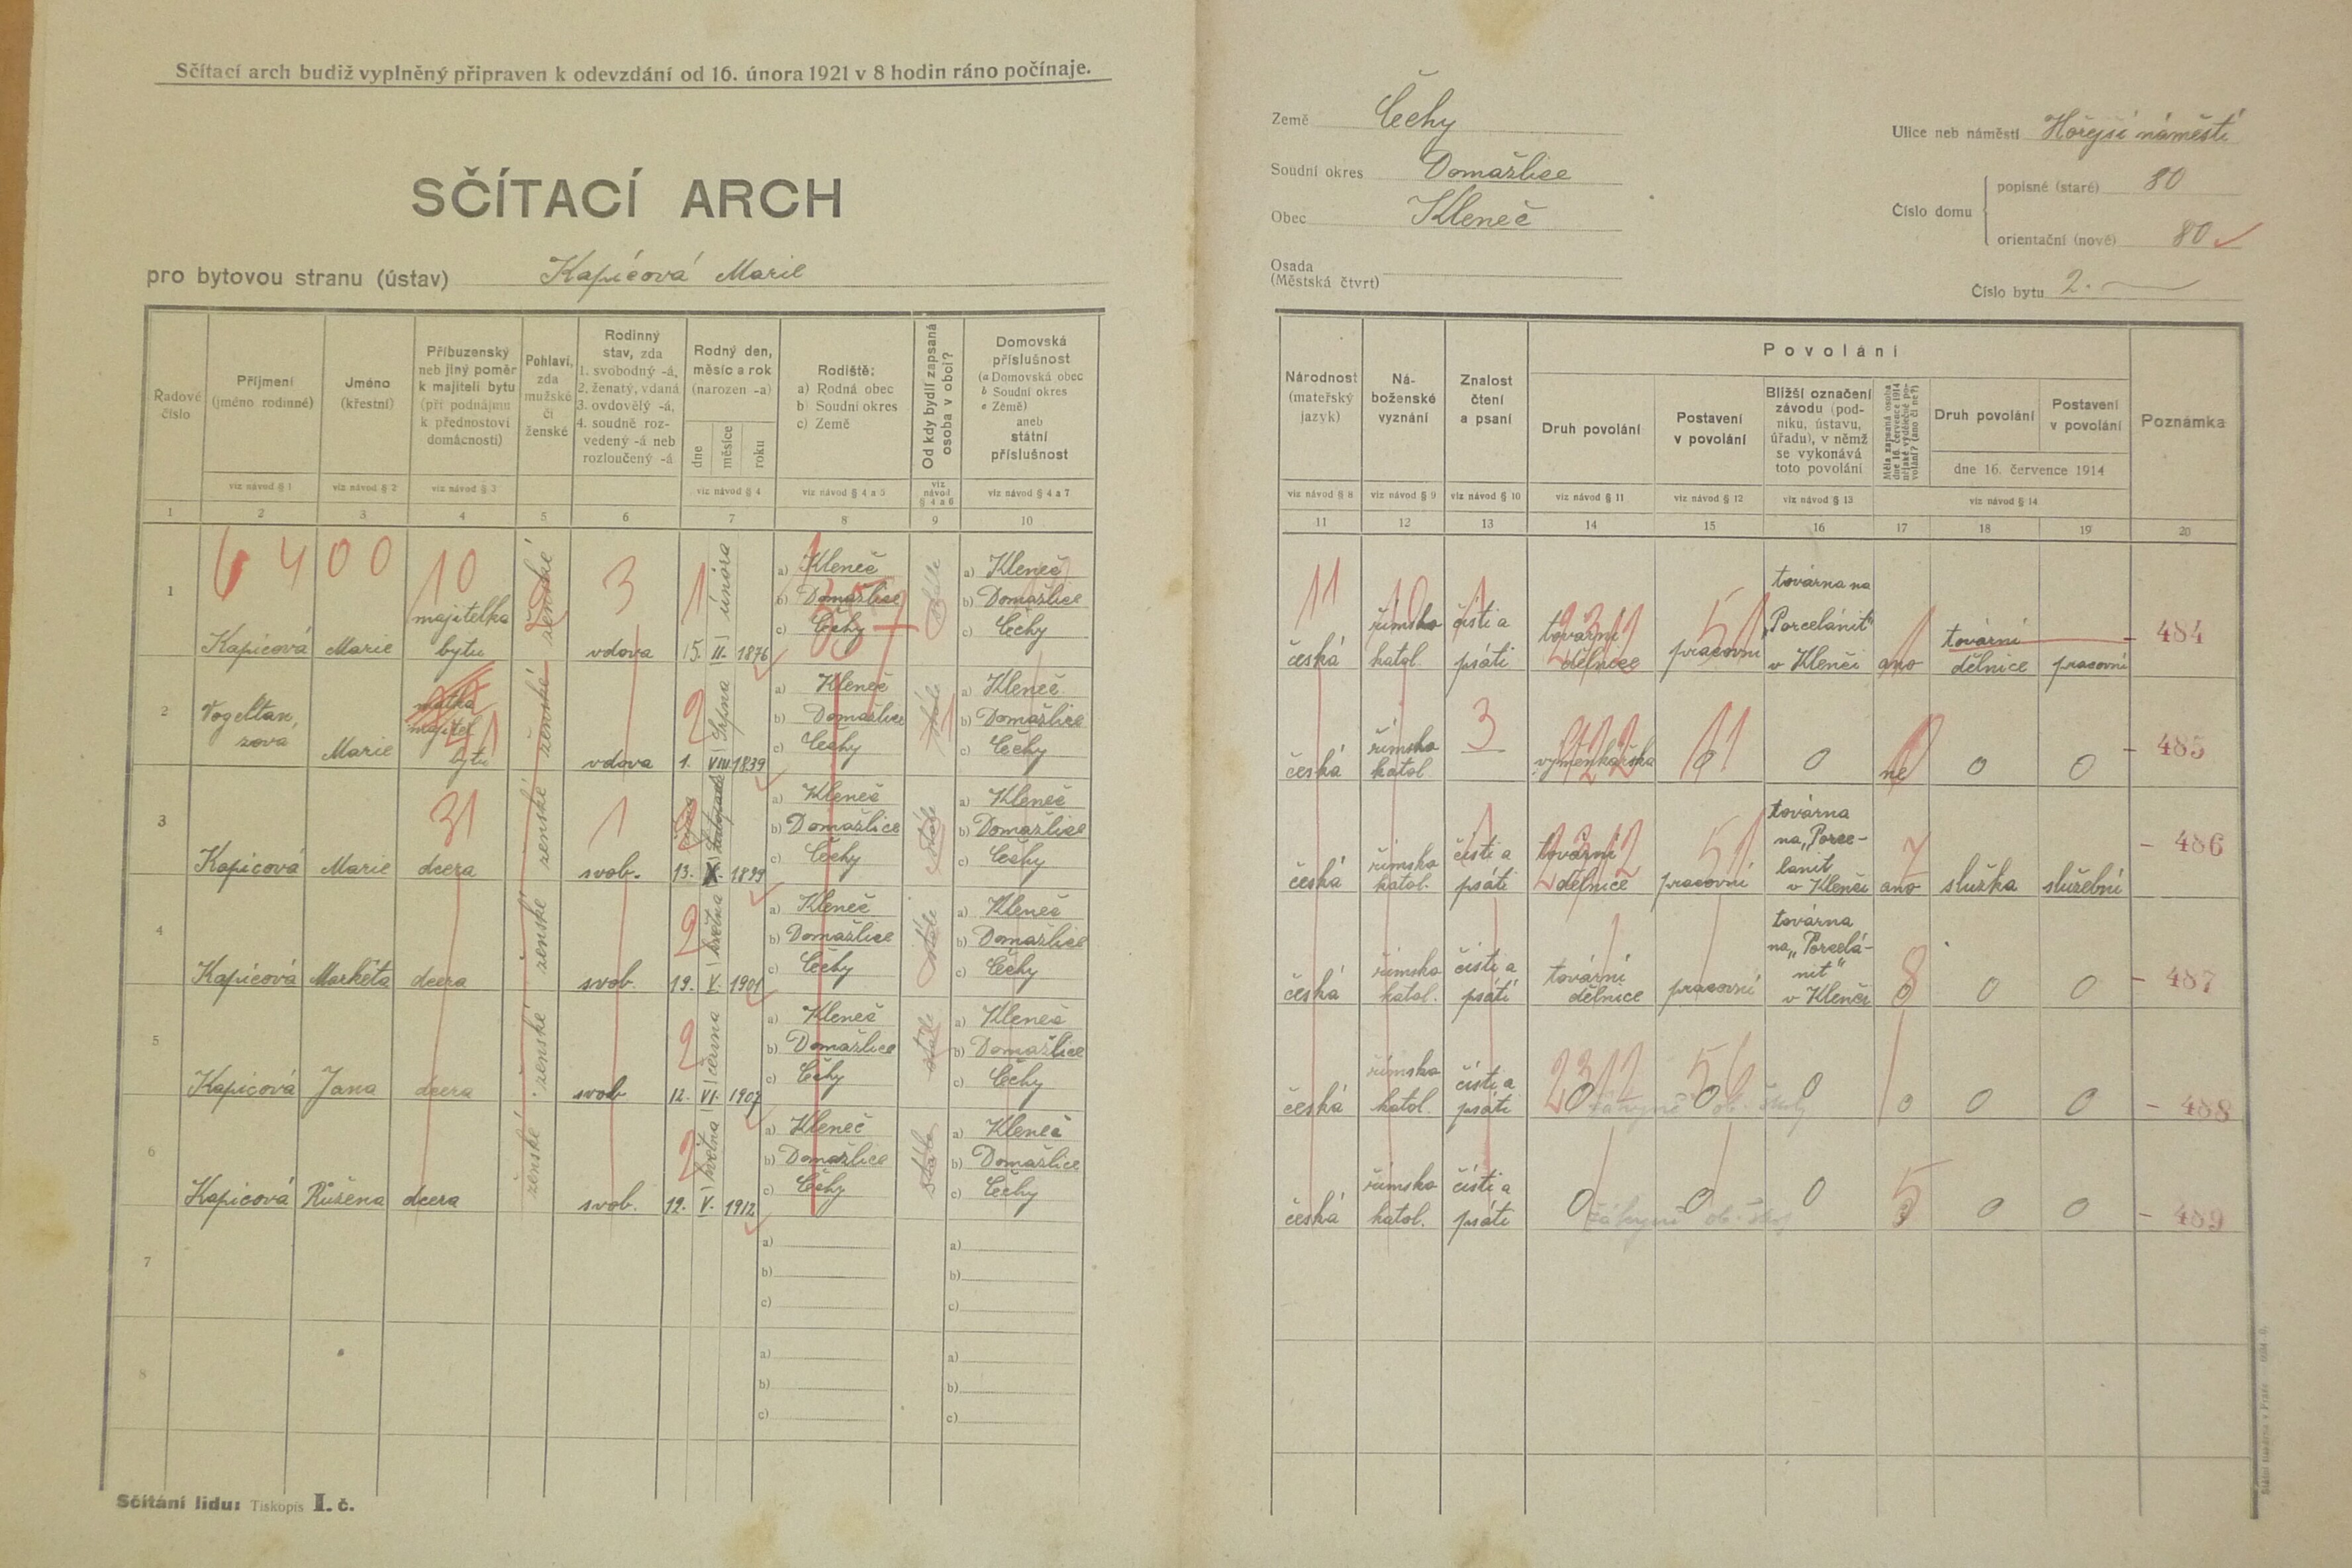 Sčítací arch budiž vyplněný připraven k odevzdání od 16. února 1921 v 8 hodin ráno počínaje.
SČÍTACÍ ARCH
pro bytovou stranu (ústav) Kapicová Marie
Země Čechy
Soudní okres Domažlice
Obec Kleneč
Osada
(Městská čtvrť)
Ulice neb náměstí Hořejší náměstí
Číslo domu
popisné (staré) 80
orientační (nové) 80
Číslo bytu 2.
Řadové číslo
Příjmení (jméno rodinné)
Jméno (křestní)
Příbuzenský neb jiný poměr k majiteli bytu (při podnájmu k přednostovi domácnosti)
Pohlaví, zda mužské či ženské
Rodinný stav, zda 1. svobodný -á, 2. ženatý, vdaná 3. ovdovělý -á, 4. soudně rozvedený -á neb rozloučený -á
Rodný den, měsíc a rok (narozen -a)
dne měsíce roku
Rodiště: a) Rodná obec b) Soudní okres c) Země
Od kdy bydlí zapsaná osoba v obci?
Domovská příslušnost (a Domovská obec b Soudní okres c Země) aneb státní příslušnost
viz návod § 1 viz návod § 2 viz návod § 3 viz návod § 4 viz návod § 4 a 5 viz návod § 4 a 6 viz návod § 4 a 7
1 2 3 4 5 6 7 8 9 10
Národnost (mateřský jazyk)
Náboženské vyznání
Znalost čtení a psaní
Povolání
Druh povolání
Postavení v povolání
Bližší označení závodu (podniku, ústavu, úřadu), v němž se vykonává toto povolání
Měla zapsaná osoba dne 16. července 1914 nějaké výdělečné povolání? (ano či ne?)
Druh povolání
Postavení v povolání
dne 16. července 1914
Poznámka
viz návod § 8 viz návod § 9 viz návod § 10 viz návod § 11 viz návod § 12 viz návod § 13 viz návod § 14
11 12 13 14 15 16 17 18 19 20
6 4 0 0 10 2 3 1
1 Kapicová Marie majitelka bytu ženské vdova 15. II. února 1876 a) Kleneč b) Domažlice c) Čechy a) Kleneč b) Domažlice c) Čechy
česká římsko katol. čísti a psáti tovární dělnice pracovní továrna na „Porcelánit" v Klenči ano tovární dělnice pracovní - 484
2 Vogeltanzová Marie matka majitel bytu ženské vdova 1. VIII. Srpna 1839 a) Kleneč b) Domažlice c) Čechy a) Kleneč b) Domažlice c) Čechy
česká římsko katol. — výměnkářka 0 0 ne 0 0 - 485
3 Kapicová Marie dcera ženské svob. 13. X. 1899 a) Kleneč b) Domažlice c) Čechy stále a) Kleneč b) Domažlice c) Čechy
česká římsko katol. čísti a psáti tovární dělnice pracovní továrna na „Porcelanit v Klenči ano služka služební - 486
4 Kapicová Markéta dcera ženské svob. 19. V. května 1901 a) Kleneč b) Domažlice c) Čechy stále a) Kleneč b) Domažlice c) Čechy
česká římsko katol. čísti a psáti tovární dělnice pracovní továrna na „Porcelánit" v Klenči 0 0 0 - 487
5 Kapicová Jana dcera ženské svob 12. VI. června 1907 a) Kleneč b) Domažlice c) Čechy stále a) Kleneč b) Domažlice c) Čechy
česká římsko katol. čísti a psáti 0 0 0 0 0 0 - 488
6 Kapicová Růžena dcera ženské svob. 12. V. května 1912 a) Kleneč b) Domažlice c) Čechy stále a) Kleneč b) Domažlice c) Čechy
česká římsko katol. čísti a psáti 0 0 0 0 0 - 489
7 a) b) c) a) b) c)
8 a) b) c) a) b) c)
Sčítání lidu: Tiskopis I. č.